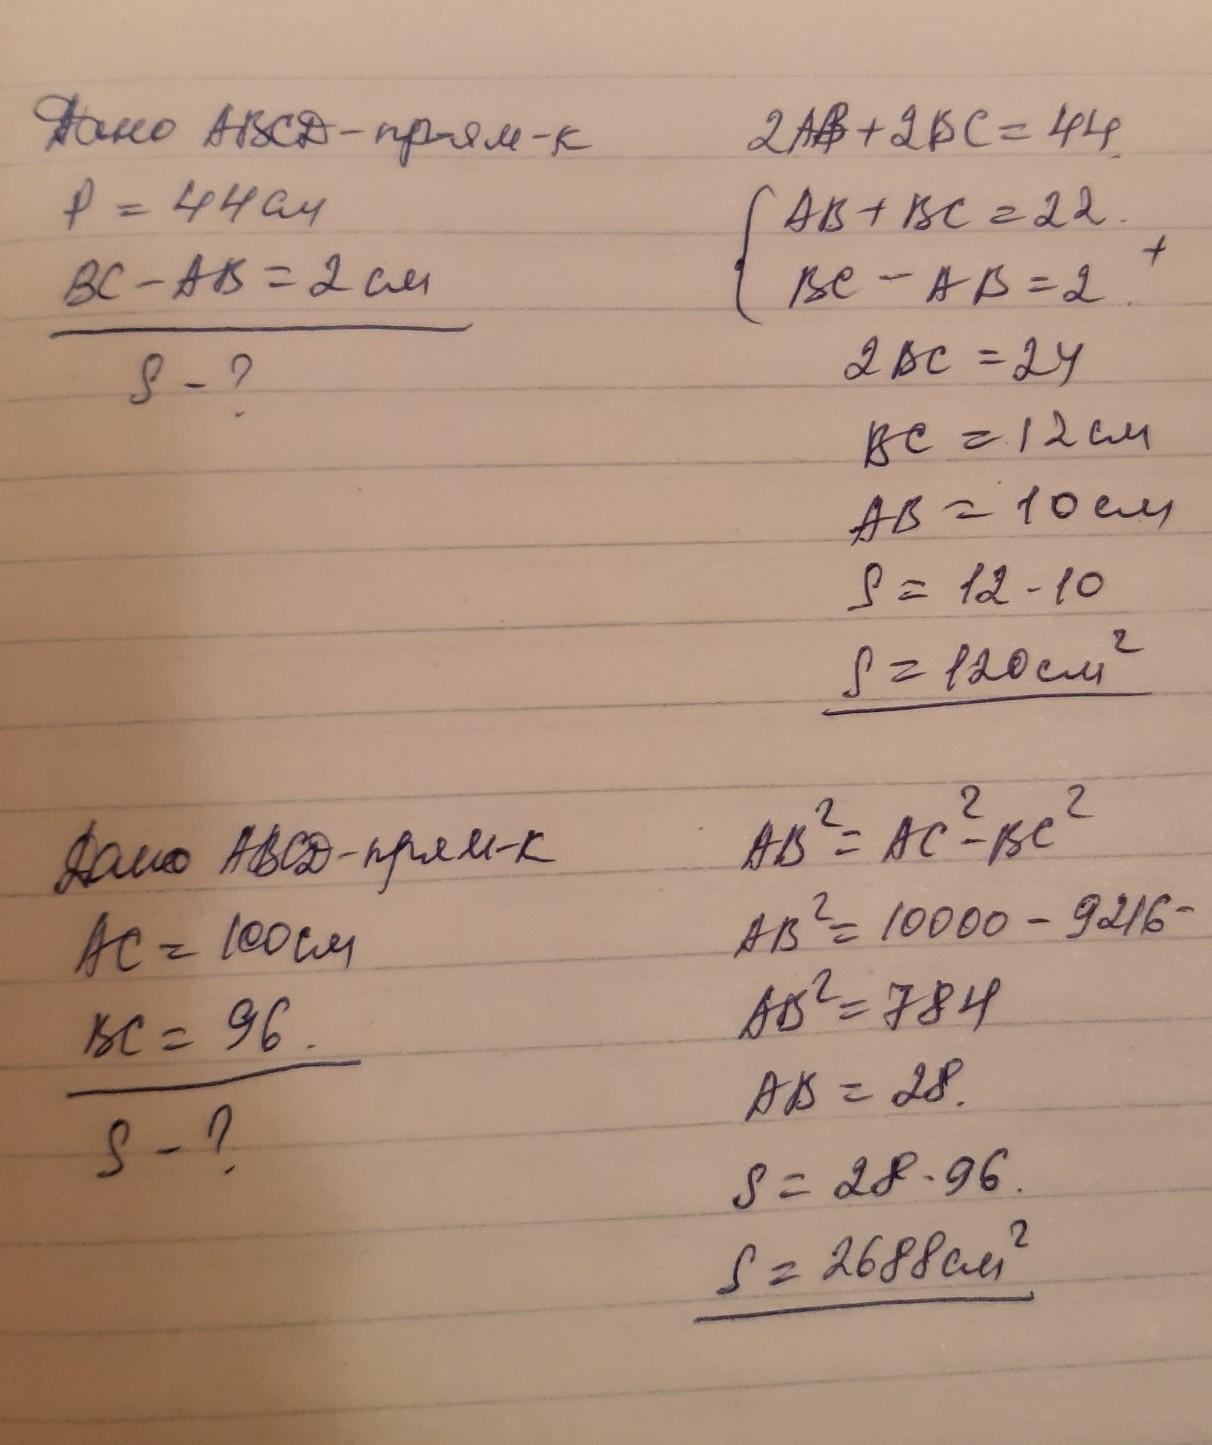 Дано ABCD-пр-ям-к
P = 44см
BC - AB = 2 см
S - ?
2AB + 2BC = 44.
AB + BC = 22.
+
BC - AB = 2.
2BC = 24
BC = 12 см
AB = 10 см
S = 12 · 10
S = 120 см²
Дано ABCD-прям-к
AC = 100см
BC = 96.
S - ?
AB² = AC² - BC²
AB² = 10000 - 9216-
AB² = 784
AB = 28.
S = 28 · 96.
S = 2688 см²